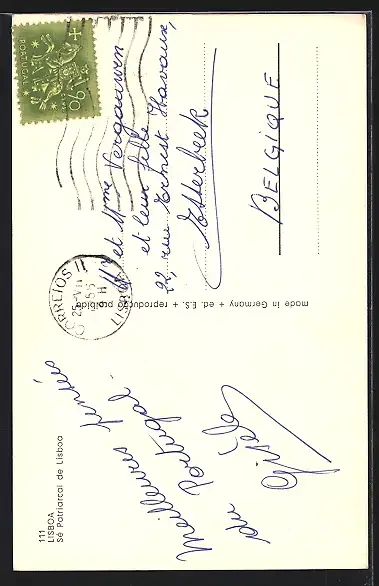 111
LISBOA
Sé Patriarcal de Lisboa
Meilleures pensées
du Portugal.
Gisèle
made in Germany + ed. E.S. + reprodução proibida
PORTUGAL
CORREIOS
LISBOA
Mr et Mme Vergauwen
et leur fille
22, rue Ernest Havaux,
Etterbeek
BELGIQUE